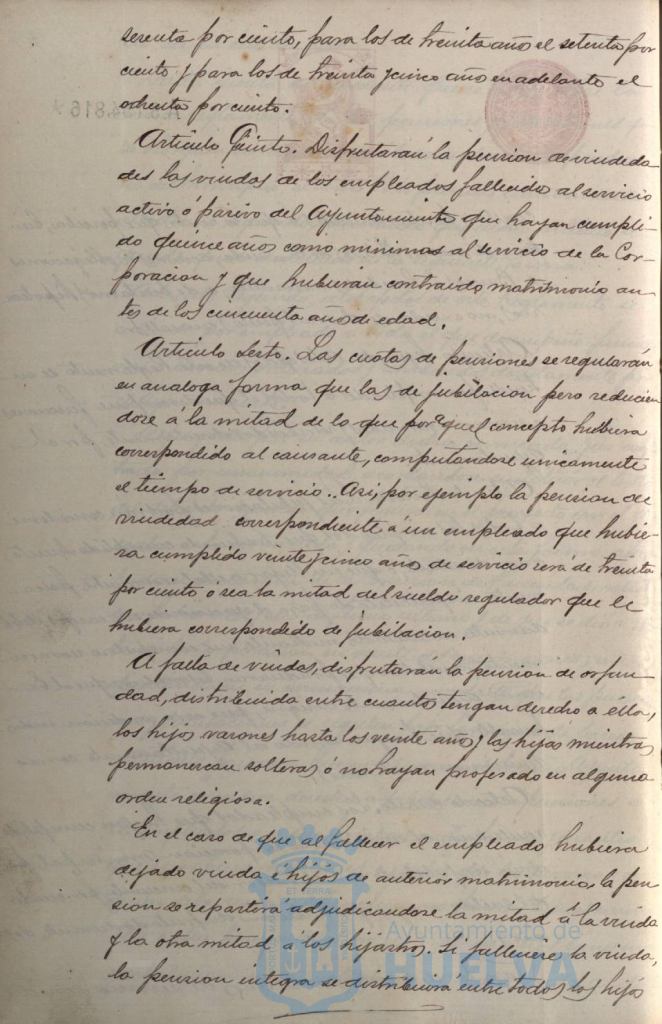 sesenta por ciento, para los de treinta años el setenta por
ciento y para los de treinta y cinco años en adelante el
ochenta por ciento.
Artículo Quinto. Disfrutarán la pension de viudeda
des las viudas de los empleados fallecidos al servicio
activo ó pasivo del Ayuntamiento que hayan cumpli-
do quince años como minimas al servicio de la Cor-
poracion y que hubieran contraido matrimonio an-
tes de los cincuenta años de edad.
Artículo Sesto. Las cuotas de pensiones se regularán
en analoga forma que las de jubilacion pero reducien
dose á la mitad de lo que por aquel concepto hubiera
correspondido al causante, computandose unicamente
el tiempo de servicio.. Asi, por ejemplo la pension de
viudedad correspondiente á un empleado que hubie-
ra cumplido veinte y cinco años de servicio será de treinta
por ciento ó sea la mitad del sueldo regulador que le
hubiera correspondido de jubilacion.
A falta de viudas, disfrutarán la pensión de orfan
dad, distribuida entre cuantos tengan derecho a élla,
los hijos varones hasta los veinte años y las hijas mientras
permanezcan solteras ó no hayan profesado en alguna
orden religiosa.
En el caso de que al fallecer el empleado hubiera
dejado viuda é hijos de anterior matrimonio, la pen
sion se repartirá adjudicandose la mitad á la viuda
y la otra mitad á los hijastros. Si falleciere la viuda,
la pension integra se distribuirá entre todos los hijos
Ayuntamiento de
HUELVA